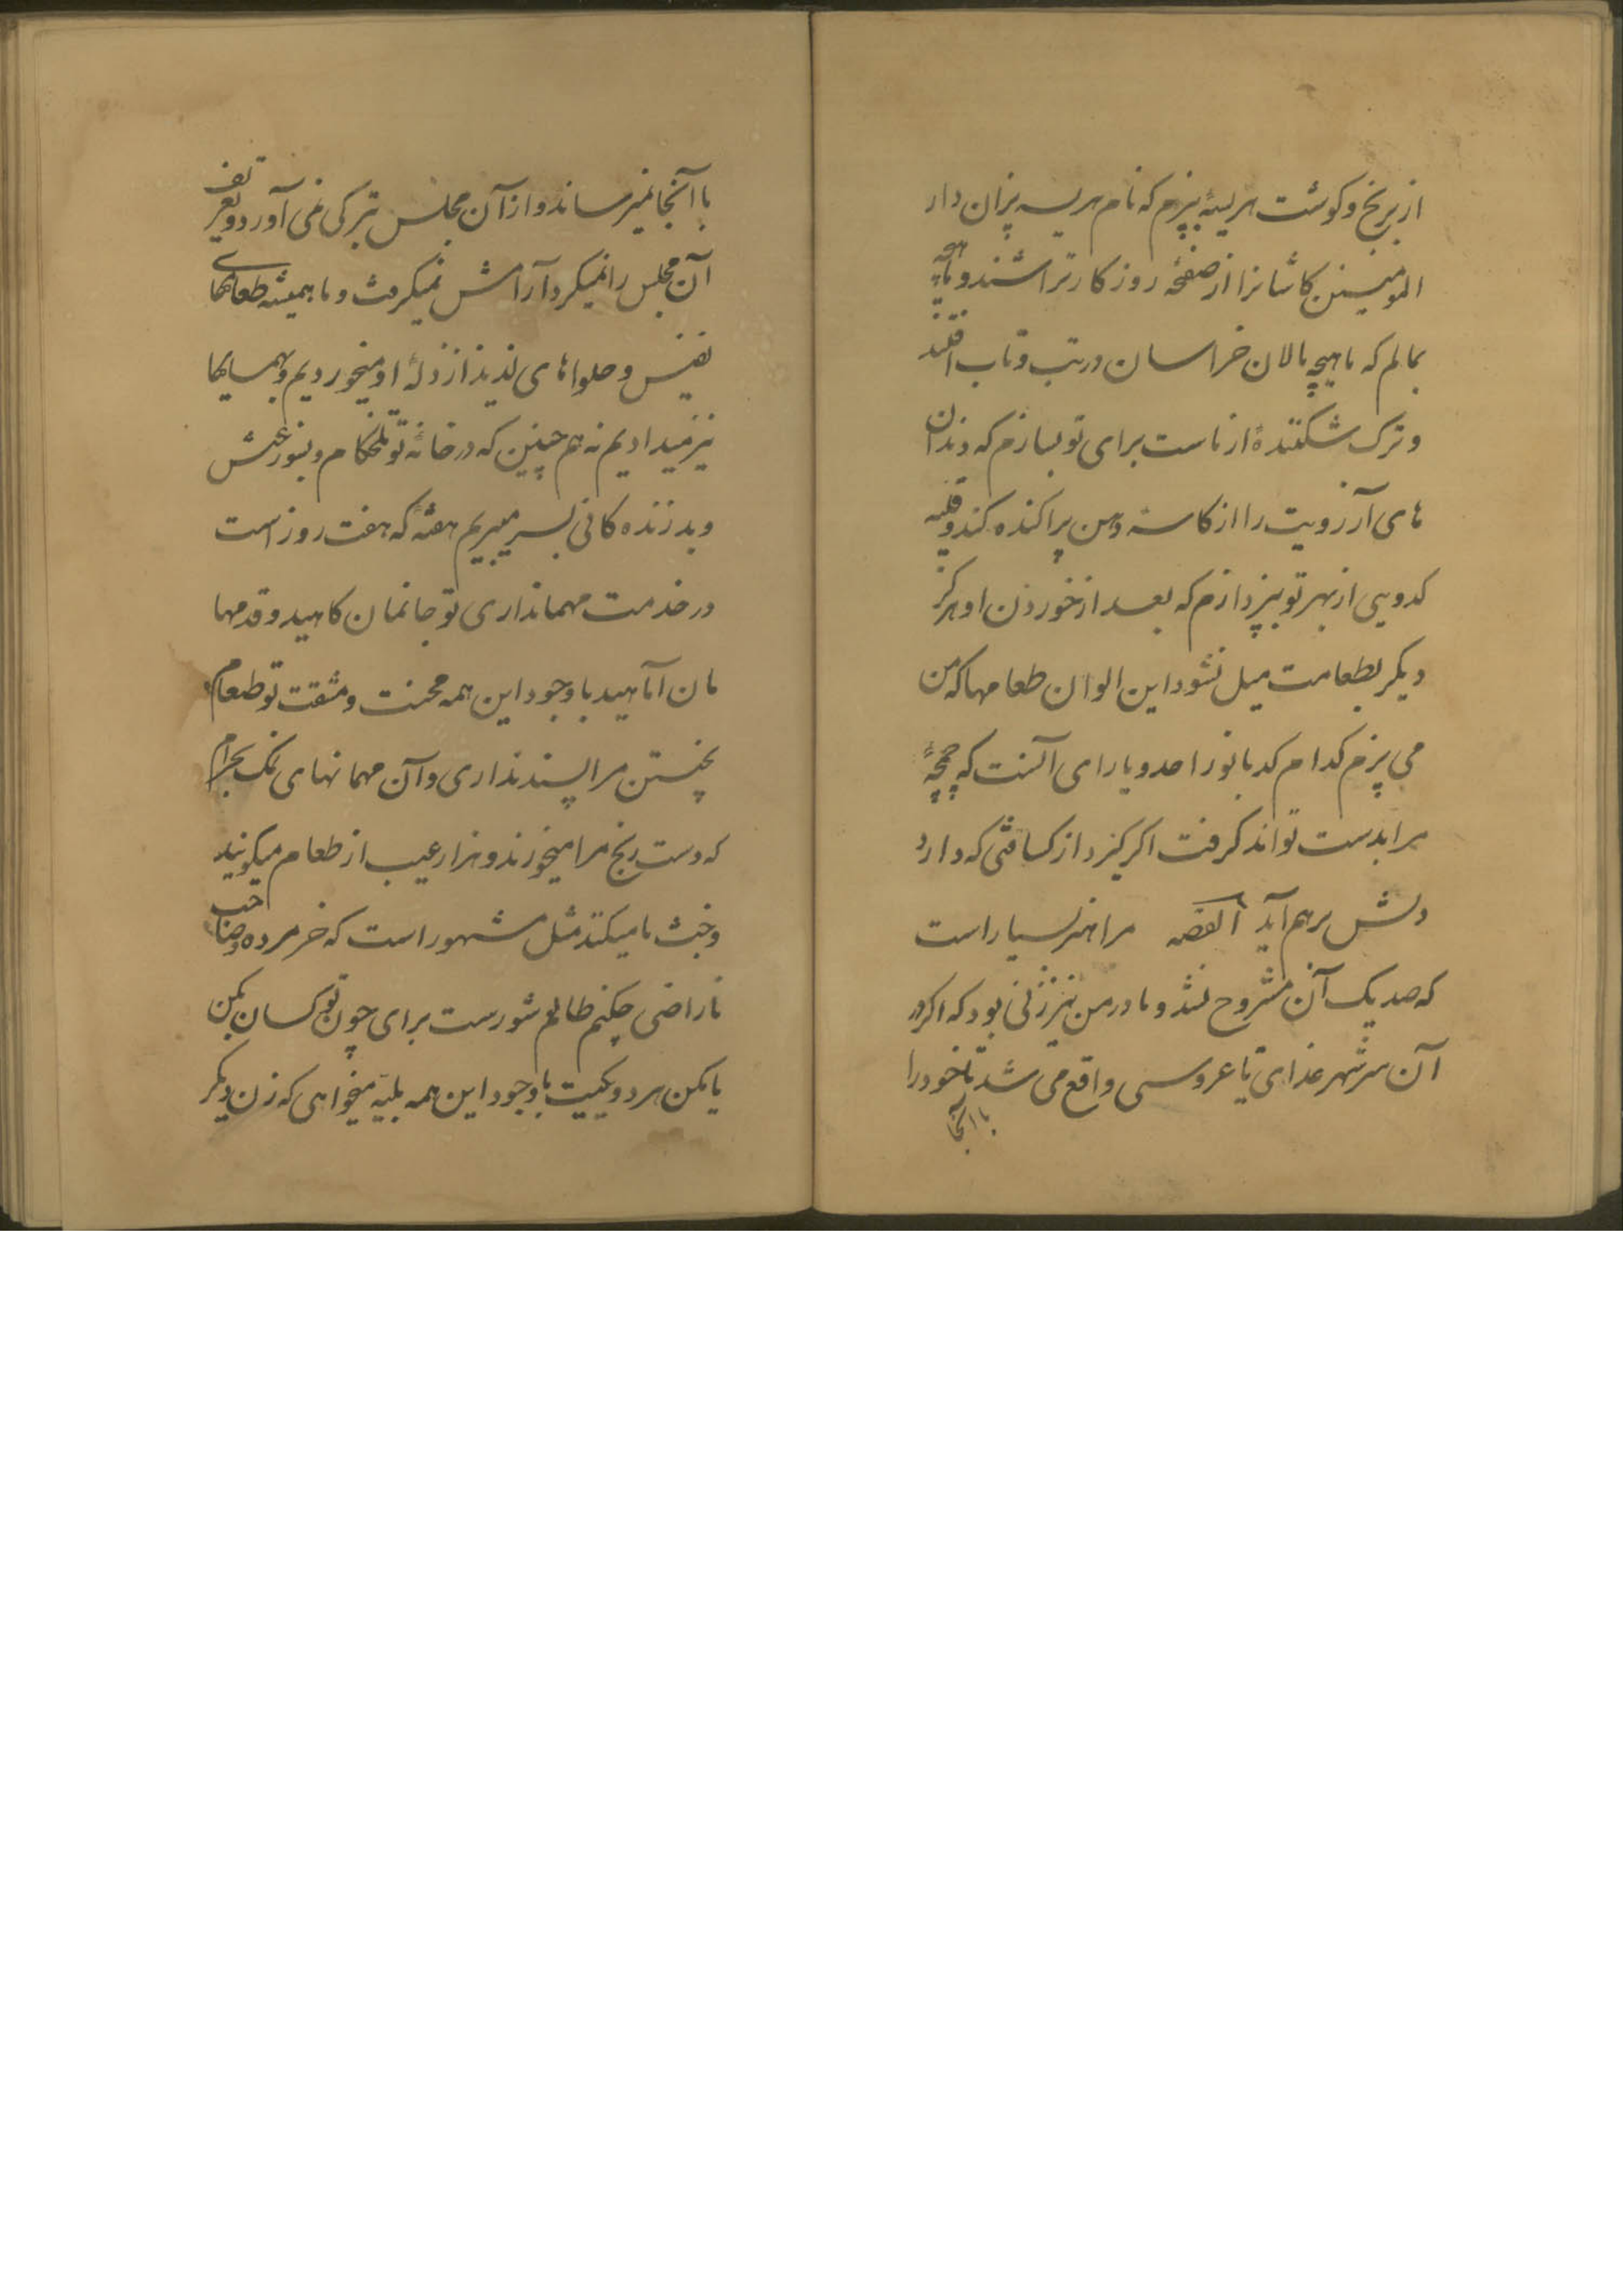 از برنج و کوشت هریسهٔ بپزم که نام هریسه پزان دار
المومنین کاشانرا از صفحهٔ روزکار تراشند و ماهیچه
بمالم که ماهیچه مالان خراسان در تب و تاب افتند
و ترک شکنندهٔ از ماست برای تو بسازم که دندان
های آرزویت را از کاسهٔ دهن پراکنده کند و قلیه
کدویی از بهر تو بپردازم که بعد از خوردن او هرکز
دیکر بطعامت میل نشود این الوان طعامها که من
می پزم کدام کدبانو را حد و یارای آنست که چمچهٔ
مرا بدست تواند کرفت اکر کیرد از کسافتی که دارد
دلش برهم آید القصه مرا هنر بسیار است
که صد یک آن مشروح نشد و مادر من نیز زنی بود که اکر در
آن سر شهر عذای یا عروسی واقع می شد تا خود را
باآنجا
باآنجا نمیرساند و از آن مجلس تبرکی نمی آورد و تعریف
آن مجلس را نمیکرد آرامش نمیکرفت و ما همیشه طعامهای
نفیس و حلواهای لذیذ از زلهٔ او میخوردیم و بهمسایها
نیز میدادیم نه هم چنین که در خانهٔ تو تلخکام و بشورعیش
و بد زنده کانی بسر میبریم هفتهٔ که هفت روز است
در خدمت مهمانداری تو جانمان کاهید و قدمها
مان آماهید با وجود این همه محنت و مشقت تو طعام
پختن مرا پسند نداری و آن مهمانهای نمک بحرام
که دست رنج مرا میخورند و هزار عیب از طعام میکویند
و خبث ما میکنند مثل مشهور است که خر مرده و صاحب
ناراضی چکنم طالم شورست برای چون تو کسان بکن
یا مکن هر دو یکیست با وجود این همه بلیه میخواهی که زن دیکر